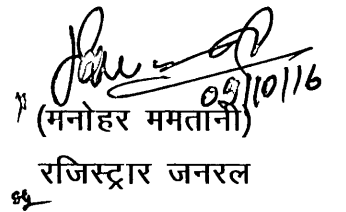 09/10/16
(मनोहर ममतानी)
रजिस्ट्रार जनरल